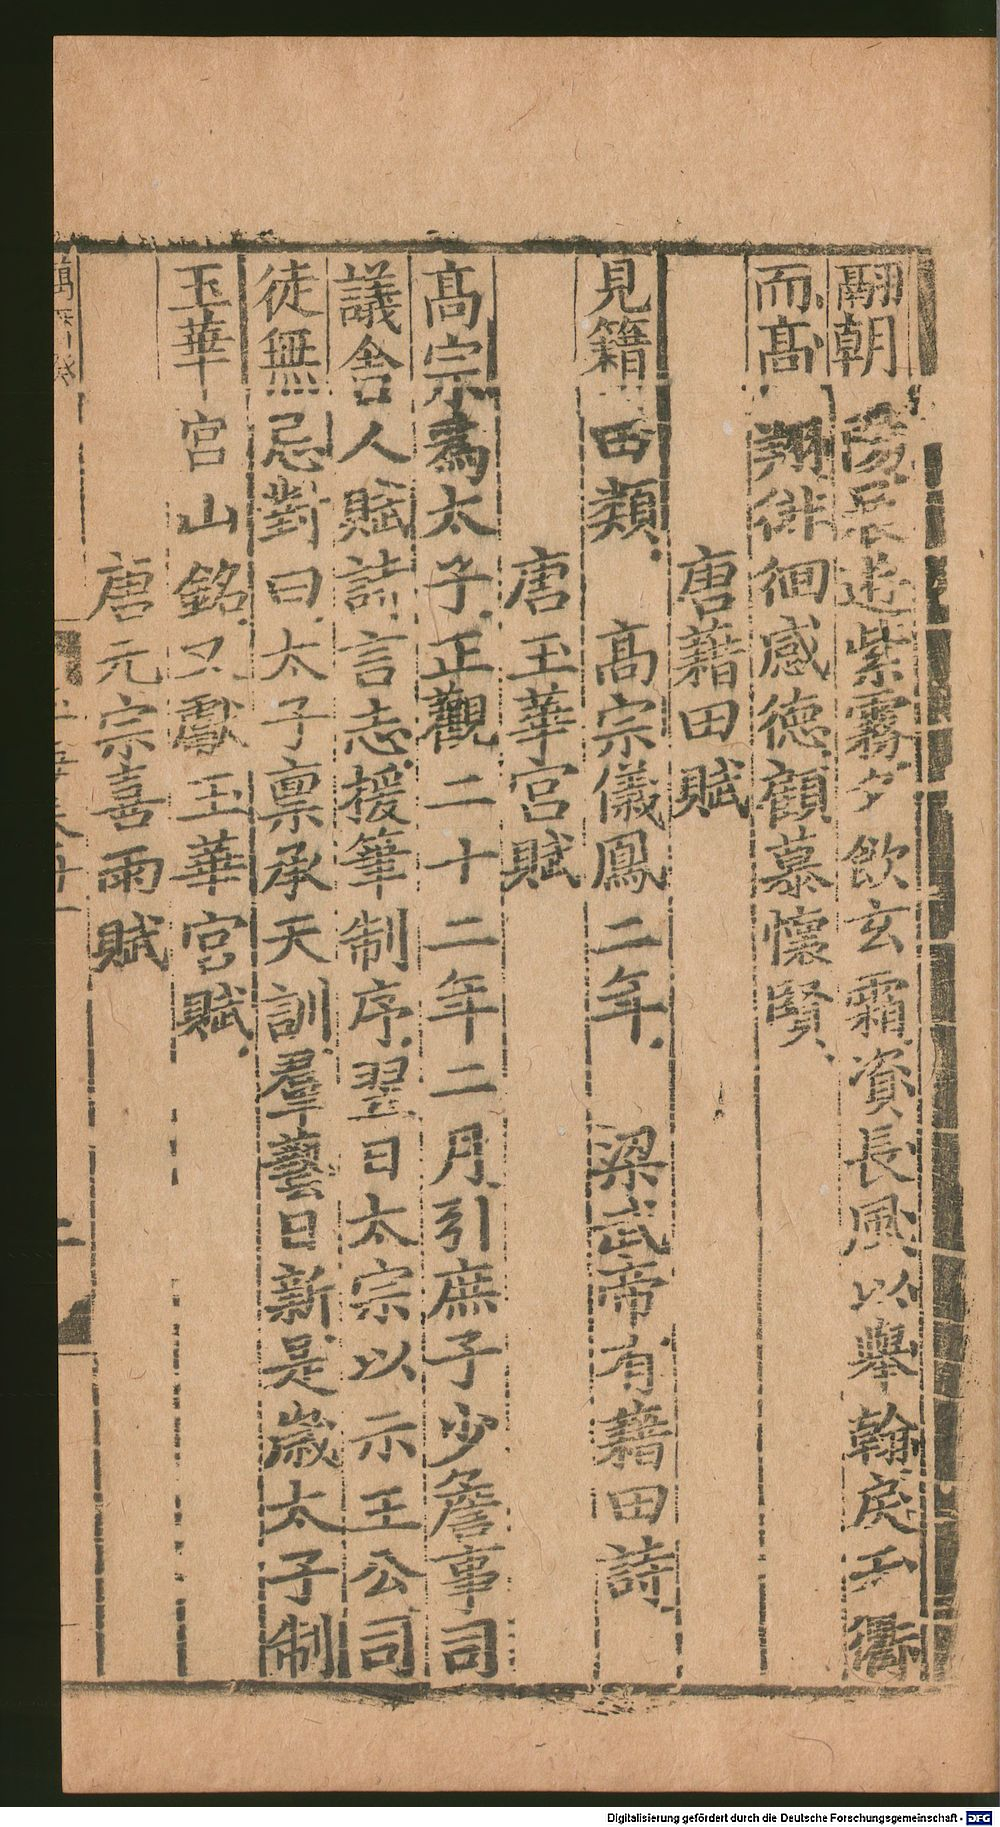 翮朝陽晨遊紫霧夕飲玄霜資長風以舉翰戾天衢
而高翔徘徊感德顧慕懷賢
唐藉田賦
見籍田類高宗儀鳳二年梁武帝有藉田詩
唐玉華宮賦
髙宗為太子正觀二十二年二月引庶子少詹事司
議舍人賦詩言志援筆制序翌日太宗以示王公司
徒無忌對曰太子禀承天訓羣藝日新是歲太子制
玉華宮山銘又獻玉華宮賦
唐元宗喜雨賦
Digitalisierung gefördert durch die Deutsche Forschungsgemeinschaft - DFG